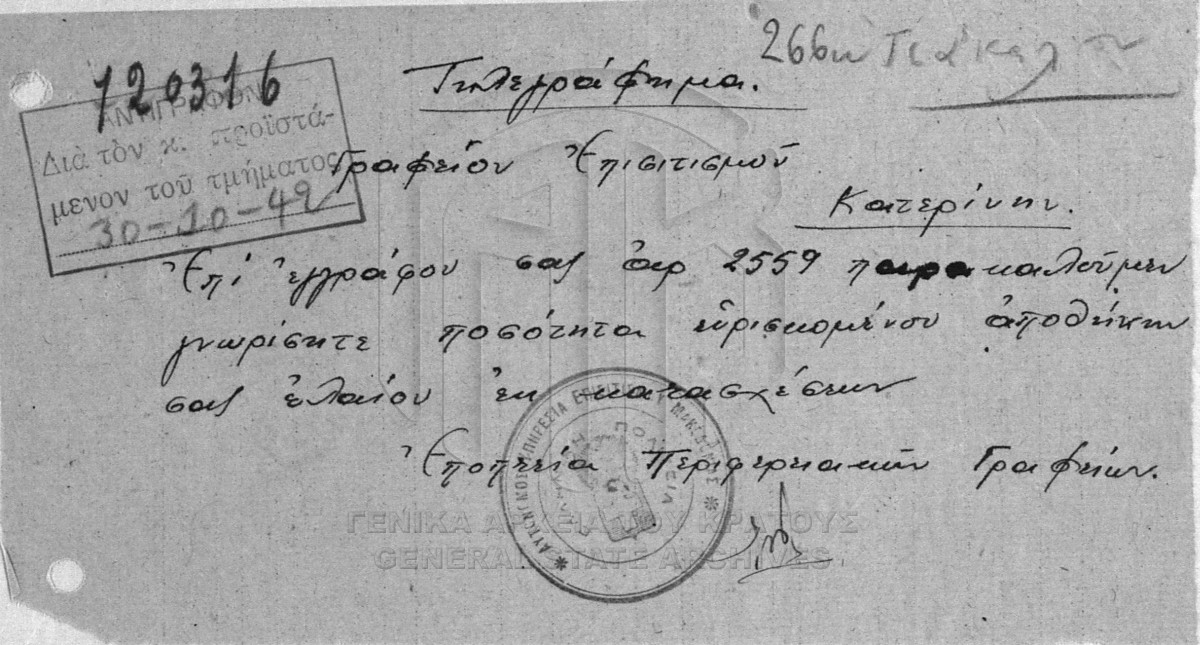 120316
ΑΝΤΙΓΡΑΦΟΝ
Διὰ τὸν κ. προϊστά-
μενον τοῦ τμήματος
30-10-42
266
Τηλεγράφημα.
Γραφεῖον Ἐπισιτισμοῦ
Κατερίνην.
Ἐπί ἐγγράφου σας ἀρ 2559 παρακαλοῦμεν
γνωρίσητε ποσότητα εὑρισκομένου ἀποθήκην
σας ἐλαίου ἐκ κατασχέσεων
Ἐποπτεία Περιφερειακῶν Γραφείων.
ΕΛΛΗΝΙΚΗ ΠΟΛΙΤΕΙΑ
ΓΕΝΙΚΑ ΑΡΧΕΙΑ ΤΟΥ ΚΡΑΤΟΥΣ
GENERAL STATE ARCHIVES